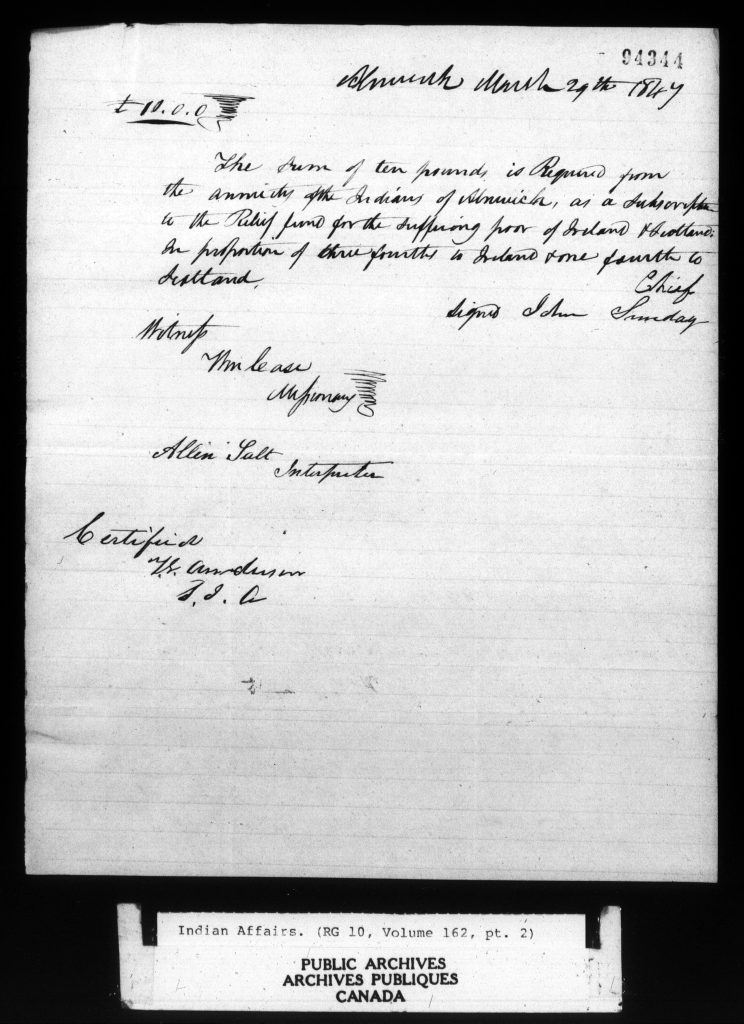 94344
Alnwick March 29th 1847
£ 10.0.0
The sum of ten pounds is Required from
the annuity of the Indians of Alnwick, as a subscription
to the Relief fund for the suffering poor of Ireland & Scotland:
In proportion of three fourths to Ireland & one fourth to
Scotland.
Chief
signed John Sunday
Witness
Wm Case
Missionary
Allen Salt
Interpreter
Certified
Anderson
S. I. A
Indian Affairs. (RG 10, Volume 162, pt. 2)
PUBLIC ARCHIVES
ARCHIVES PUBLIQUES
CANADA